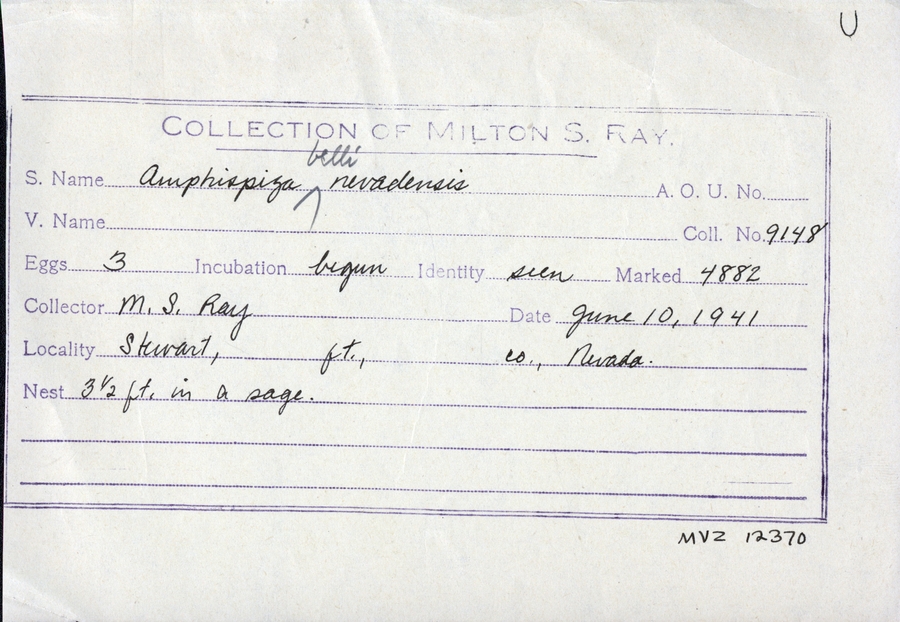 U
COLLECTION OF MILTON S. RAY.
belli
S. Name Amphispiza nevadensis A. O. U. No.
V. Name Coll. No. 9148
Eggs 3 Incubation begun Identity seen Marked 4882
Collector M. S. Ray Date June 10, 1941
Locality Stewart, ft., co., Nevada.
Nest 3 1/2 ft. in a sage.
MVZ 12370